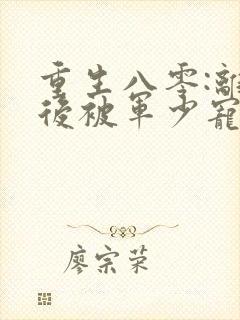 重生八零:離
後被軍少寵
廖宗荣